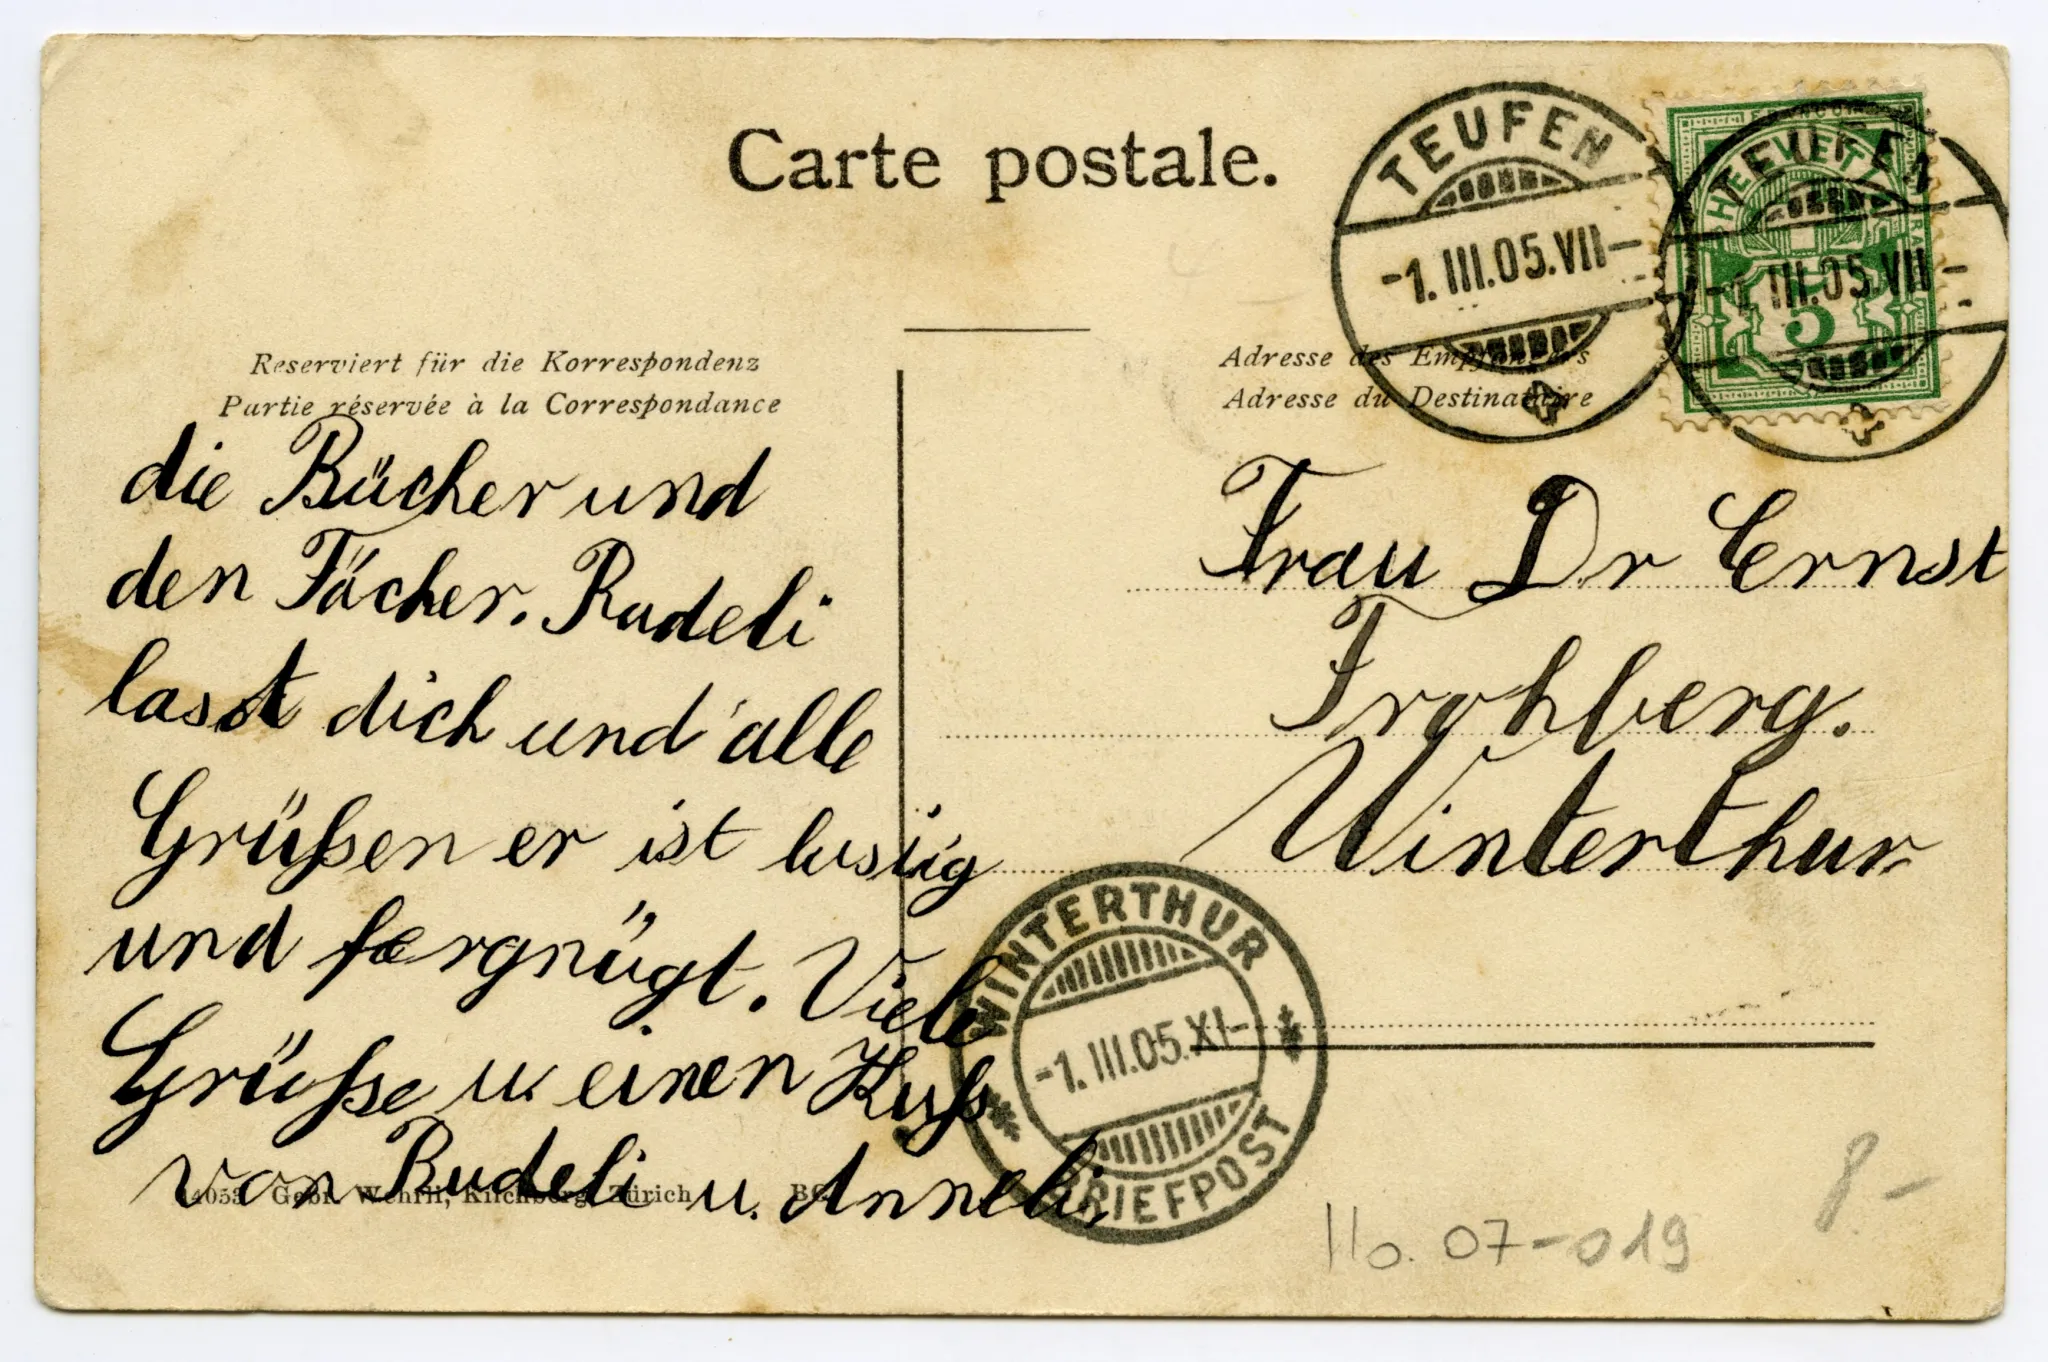 Carte postale.
TEUFEN
-1.III.05.VII-
TEUFEN
-1.III.05.VII-
HELVETIA
5
Reserviert für die Korrespondenz
Partie réservée à la Correspondance
Adresse des Empfängers
Adresse du Destinataire
die Bücher und
den Fächer. Rudeli
lasst dich und alle
Grüßen er ist lustig
und fergnügt. Viele
Grüße u. einen Kuß
von Rudeli u. Anneli.
Frau Dr Ernst
Frohberg.
Winterthur
WINTERTHUR
-1.III.05.XI-
BRIEFPOST
14053 Gebr. Wehrli, Kilchberg, Zürich
8-
110.07-019